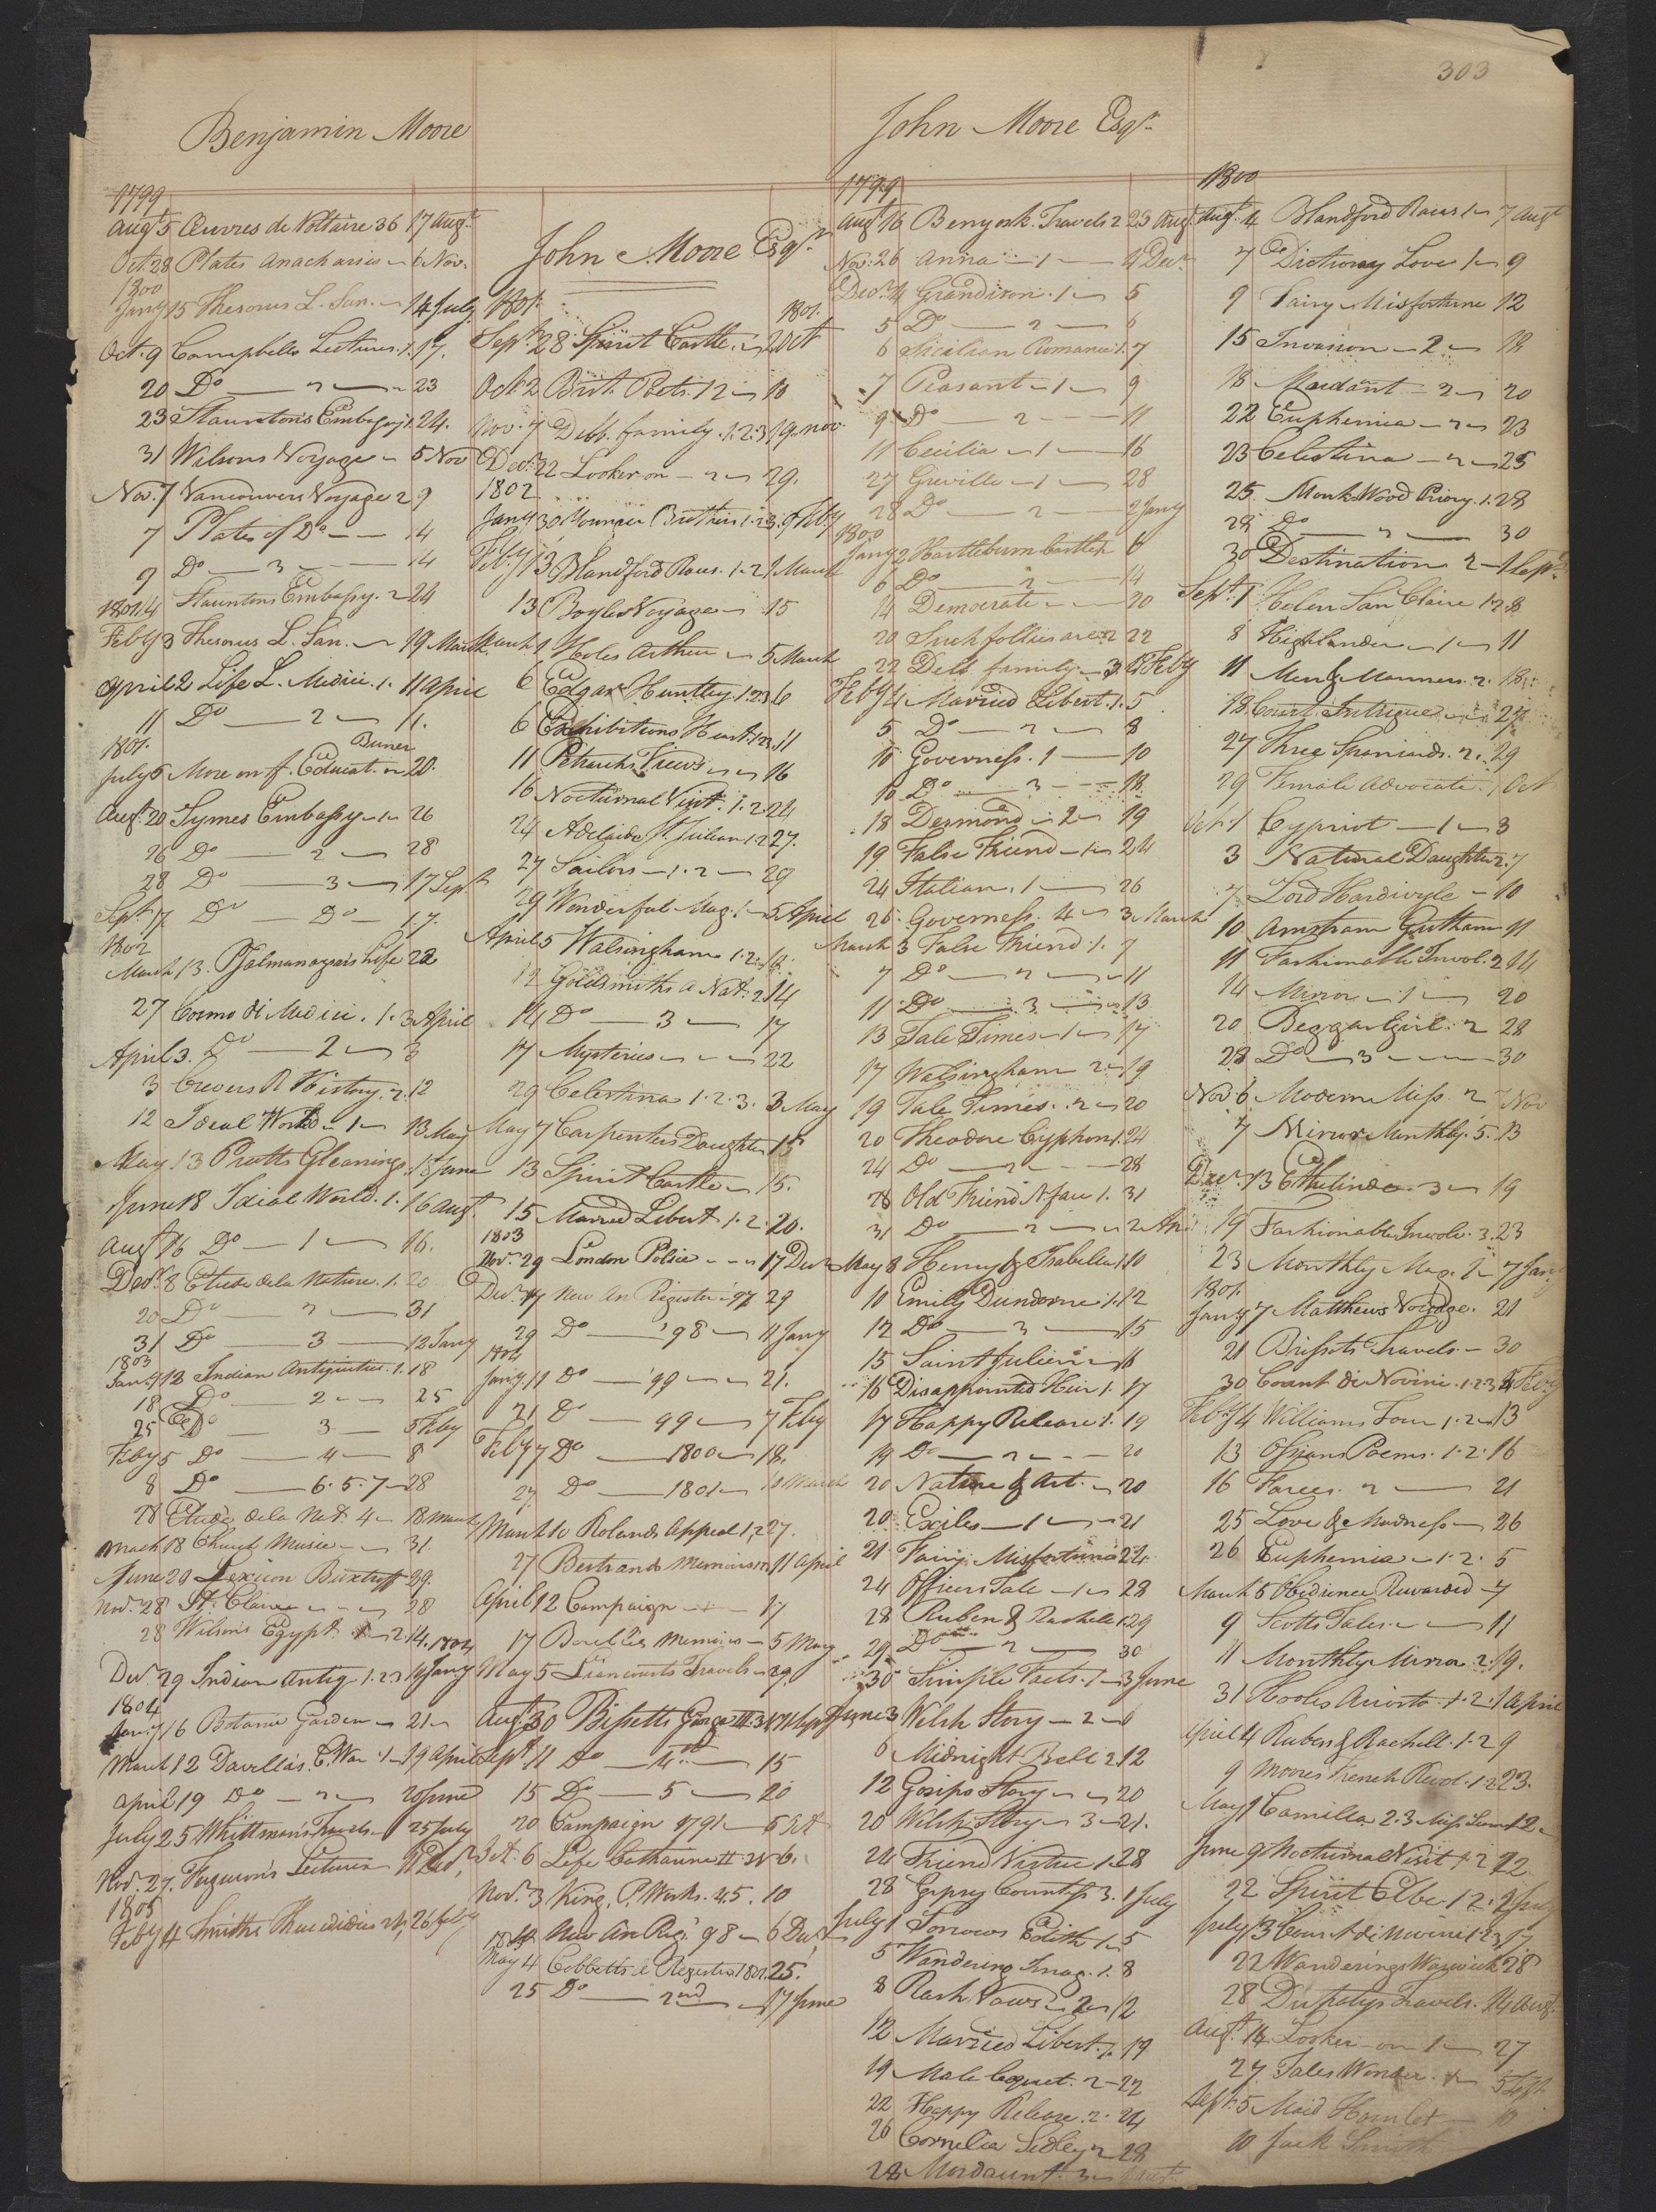 303
Benjamin Moore
1799
Augt 5 Œuvres de Voltaire 36 17 Augt
Oct. 28 Plates Anacharsis 6 Nov.
1800
Jany 15 Thesorus L. San. 14 July
Oct. 9 Campbells Lectures. 1. 17.
20 Do 2 23
23 Stauntons Embassy 1. 24.
31 Wilsons Voyage 5 Nov
Nov. 7 Vancouvers Voyage 2 9
7 Plates of Do 14
9 Do 3 14
14 Stauntons Embassy. 2 24
1801
Feby 3 Thesorus L. San. 19 March
April 2 Life L. Medici. 1. 11 April
11 Do 2 11.
1801. Buner
July 5 More on f. Educat. 2 20.
Augt. 20 Symes Embassy 1 26
26 Do 2 28
28 Do 3 17 Sept
Sept 17. Do Do 17.
1802
March 13. Psalmanazars Life 22
27 Cosmo di Medici. 1. 3 April
April 3. Do 2 3
3 Crevers R History. 2. 12
12 Ideal World 1 13 May
May 13 Pratts Gleanings. 18 June
June 18 Ideal World. 1. 16 Augt.
Augt 16 Do 1 16.
Decr. 8 Etude de la Nature. 1. 20
20 Do 2 31
31 Do 3 12 Jany
1803
Jany 12 Indian Antiquities. 1. 18
18 Do 2 25
25 Do 3 5 Feby
Feby 5 Do 4 8
8 Do 6. 5. 7 28
28 Etude de la Nat. 4 18 March
March 18 Church Music 31.
June 29 Lexicon Buxtroff 29.
Nov. 28 St. Claire 28
28 Wilson's Egypt. 2. 14. 1804
Decr. 29 Indian Antiq. 1. 2. 3 16 Jany
1804
Jany 16 Botanic Garden 21
March 12 Davilla's C. War. 1 19 April
April 19 Do 2 20 June
July 25 Whittman's Travels 25 July
Nov. 27. Ferguson's Lectures
1805
Feby 4 Smiths Thucididies 26 Feby
John Moore Esqr.
1801. 1801.
Sept. 28 Spirit Castle. 2 Oct
Oct. 2 Brit. Poets. 12 10
Nov. 7 Delb. family. 1. 2. 3 19 Nov.
Decr. 22 Looker on 2 29.
1802
Jany 30 Younger Brothers. 1. 2 3. 9 Feby
Feby 13 Blandford Races. 1. 2 1 March
13 Boyles Voyage 15
March 1 Holes Arthur 5 March
6 Edgar Huntley. 1. 2. 3 6
6 Exhibitions Heart. 1. 2. 3. 11
11 Petrarchs Views 16
16 Nocturnal Visit. 1. 2. 24
24 Adelaide St. Julian 1. 2 27.
27 Sailors 1. 2 29
29 Wonderful Mag. 1 5 April
April 5 Walsingham 1. 2. 12.
12 Goldsmiths A Nat. 2 14
14 Do 3 17
17 Mysteries 22
29 Celestina 1. 2. 3. 3 May
May 7 Carpenters Daughter 15
13 Spirit Castle 15.
15 Married Libert 1. 2. 20.
1803
Nov. 29 London Police 17 Decr
Decr. 17 New An Register '97 29
29 Do '98 11 Jany
1804
Jany 11 Do '99 21.
21 Do 99 7 Feby
Feby 7 Do 1800 18.
27 Do 1801 10 March
March 10 Rolands Appeal 1, 2 27.
27 Bertrands Memoirs 11 April
April 12 Campaign 17
17 Bouilles Memoirs 5 May
May 5 Liancourts Travels 29
Augt. 30 Bissetts George III. 3. 11 Sept
Sept. 11 Do 4th 15
15 Do 5 20
20 Campaign 1791 6 Oct
Oct. 6 Life Catharine II. 6.
Nov. 3 King. P. Works. 4. 5. 10
10 New An Reg. 98 6 Decr.
May 4 Cobbetts Register 1802. 25.
25 Do 2nd 17 June
John Moore Esqr.
1799
Augt 16 Benyonk. Travels 2 23 Augt.
Nov. 26 Anna 1 4 Decr.
Decr. 4 Grandison. 1 5
5 Do 2 6
6 Sicilian Romance 1. 7
7 Peasant 1 9
9 Do 2 11
11 Cecilia 1 16
27 Greville 1 28
28 Do 2 2 Jany
1800
Jany 2 Hartleburn Castle 1 6
6 Do 2 14
14 Democrate 20
20 Such follies are 2 22
22 Delb family 3 4 Feby
Feby 4 Married Libert. 1. 5
5 Do 2 8
10 Governess. 1 10
10 Do 3 18
18 Desmond 2 19
19 False Friend 1 24
24 Italian. 1 26
26 Governess. 4 3 March
March 3 False Friend. 1. 7
7 Do 2 11
11 Do 3 13
13 Tale Times 1 17
17 Walsingham 2 19
19 Tale Times. 2 20
20 Theodore Cyphon 1. 24
24 Do 2 28
28 Old Friend N face 1. 31
31 Do 2 2 Apr
May 8 Henry & Isabella 1. 10
10 Emily Dundorne. 1. 12
12 Do 3 15
15 Saint Julien 16
16 Disappointed Heir 1. 17
17 Happy Release. 1. 19
19 Do 2 20
20 Nature & Art. 20
20 Exiles 1 21
21 Fairy Misfortune 24.
24 Officers Tale 1 28
28 Ruben & Rachele 1. 29
29 Do 2 30
30 Simple Facts. 1 3 June
June 3 Welsh Story 2 6
6 Midnight Bell 2. 12
12 Gosips Story 20
20 Welsh Story 3 21.
24 Friend Virtue 1. 28
28 Gypsy Countess 3. 1 July
July 1 Sorrows Edith 1 5
5 Wandering Imag. 1. 8
8 Rash Vows 2 12
12 Married Libert. 1. 19
19 Male Coquet. 2 22
22 Happy Release. 2. 24
26 Cornelia Sedley 2 28
28 Mordaunt. 3
1800
Augt. 4 Blandford Races 1 7 Augt
7 Dictionay Love 1 9
9 Fairy Misfortune 12
15 Invasion 2 18
18 Mardant 2 20
22 Euphemia 2 23
23 Celestina 2 25
25. Monk Wood Priory. 1. 28
28 Do 2 30
30 Destination 2 1 Sept.
Sept. 1 Helen San Claire 1. 2. 8
8 Highlander 1 11
11 Men & Manners. 2. 18
18 Court Intrigue 27
27 Three Spaniards. 2. 29
29 Female Advocate. 1 Oct
Oct. 1 Cypriot 1 3
3 Natural Daughter 2. 7
7 Lord Hardivyle 10
10 Amstram Gutham 11
11 Fashionable Invol. 2 14
14 Mirror 1 20
20 Beggar Girl. 2 28
28 Do 3 30
Nov 6 Modern Miss. 2 7 Nov
7 Mirror Monthly. 5. 13
Decr. 13 Ethelinde 3 19
19 Fashionable Involv. 3. 23
23 Monthly Mag. 1 7 Jany
1801.
Jany 7 Matthews Voyage. 21
21 Brissots Travels. 30
30 Count Di Novini. 1. 2 3 4 Feby
Feby 4 Williams Tour 1. 2 13
13 Ossians Poems. 1. 2. 16
16 Farces. 2 21
25 Love & Madness 26
26 Euphemia 1. 2. 5
March 5 Obedience Rewarded 7
9 Scotts Tales 11
11 Monthly Mirror 2. 19.
31 Hooles Ariosto. 1. 2. 1 April
April 4 Ruben & Rachell. 1. 2 9
9 Moores French Revol. 1. 2 23.
May 1 Camilla. 2. 3 12
June 9 Nocturnal Visit 1. 2 22
22 Spirit Elbe. 1 2. 2 July
July 13 Count di Novini 1. 2. 3 17
22 Wanderings Warwick 28
28 Dupatys Travels. 14 Augt.
Augt. 14 Looker on 1 27
27 Tales Wonder. 5 Sept
Sept. 5 Maid Hamlet 10
10 Jack Smith